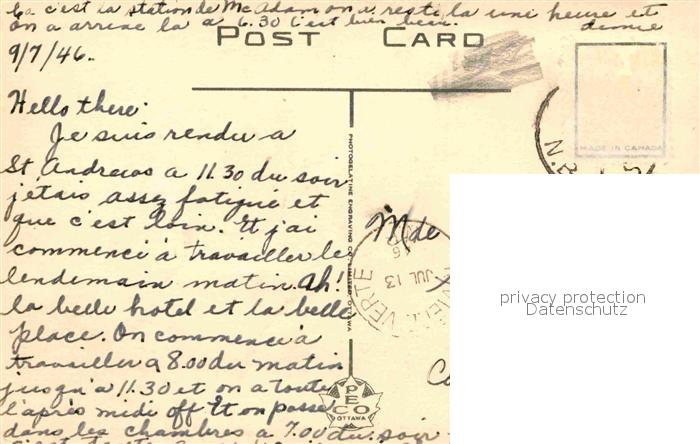 La c'est la station de McAdam on a resté la une heure et demie
on a arrivé la a 6.30 C'est bien beau.
POST CARD
9/7/46.
MADE IN CANADA
N.B.
Hello there:
Je suis rendu a
St Andrews a 11.30 du soir
jetais assez fatigué et
que c'est loin. Et j'ai
commencé à travailler le
lendemain matin. Ah!
la belle hotel et la belle
place. On commence à
travailler a 8.00 du matin
jusqu'a 11.30 et on a toute
l'après midi off Et on passe
dans les chambres a 7.00 du soir
PHOTOGELATINE ENGRAVING CO. LIMITED, OTTAWA
Mde
JUL 13
VERTE
PECO
OTTAWA
privacy protection
Datenschutz